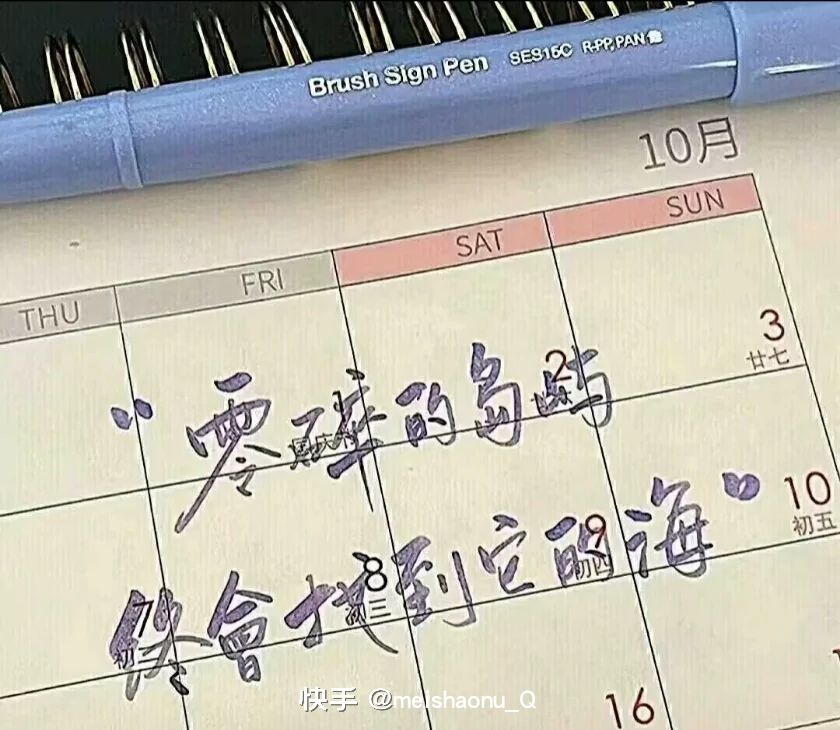 Brush Sign Pen SES15C R-PP, PAN
10月
THU FRI SAT SUN
2 3
廿七
“零碎的岛屿
国庆节
7 8 9 10
初三 初四 初五
终會找到它的海”
16
快手 @meishaonu_Q